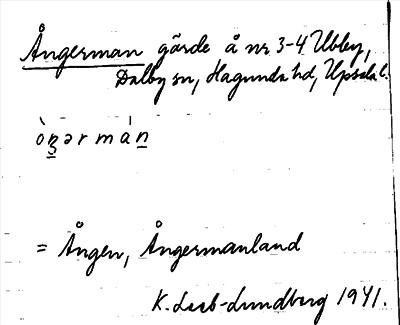 Ångerman gärde å nr 3-4 Ubby,
Dalby sn, Hagunda hd, Upsala l.
òn̠ərmán̠
= Ången, Ångermanland
K. Leeb-Lundberg 1941.